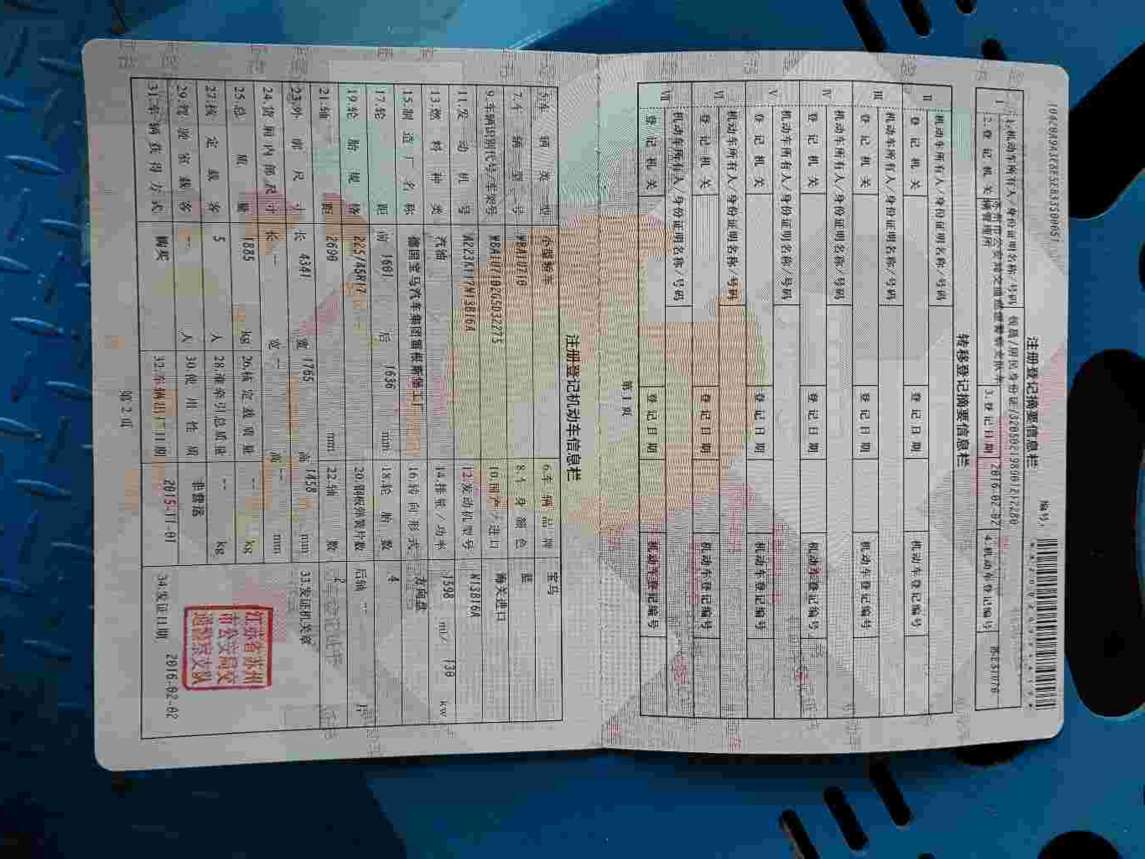 注册登记摘要信息栏
编号:
I
1.机动车所有人/身份证明名称/号码
2.登记机关
3.登记日期 2016-02-02
4.机动车登记编号
转移登记摘要信息栏
II 机动车所有人/身份证明名称/号码
登记机关 登记日期 机动车登记编号
III 机动车所有人/身份证明名称/号码
登记机关 登记日期 机动车登记编号
IV 机动车所有人/身份证明名称/号码
登记机关 登记日期 机动车登记编号
V 机动车所有人/身份证明名称/号码
登记机关 登记日期 机动车登记编号
VI 机动车所有人/身份证明名称/号码
登记机关 登记日期 机动车登记编号
VII 机动车所有人/身份证明名称/号码
登记机关 登记日期 机动车登记编号
第1页
注册登记机动车信息栏
5.车辆类型 小型轿车 6.车辆品牌 宝马
7.车辆型号 8.车身颜色 蓝
9.车辆识别代号/车架号 10.国产/进口 海关进口
11.发动机号 12.发动机型号 N13B16A
13.燃料种类 汽油 14.排量/功率 1598 ml/ 130 kw
15.制造厂名称 德国宝马汽车集团雷根斯堡工厂 16.转向形式 方向盘
17.轮距 前 1681 后 1636 mm 18.轮胎数 4
19.轮胎规格 225/45R17 20.钢板弹簧片数 后轴 -- 片
21.轴距 2690 mm 22.轴数 2
23.外廓尺寸 长 4341 宽 1765 高 1458 mm 33.发证机关章
24.货厢内部尺寸 长 -- 宽 -- 高 -- mm
25.总质量 1885 kg 26.核定载质量 -- kg
27.核定载客 5 人 28.准牵引总质量 -- kg
29.驾驶室载客 -- 人 30.使用性质 非营运
31.车辆获得方式 购买 32.车辆出厂日期 2015-11-01
江苏省苏州
市公安局交
通警察支队
34.发证日期 2016-02-02
第2页